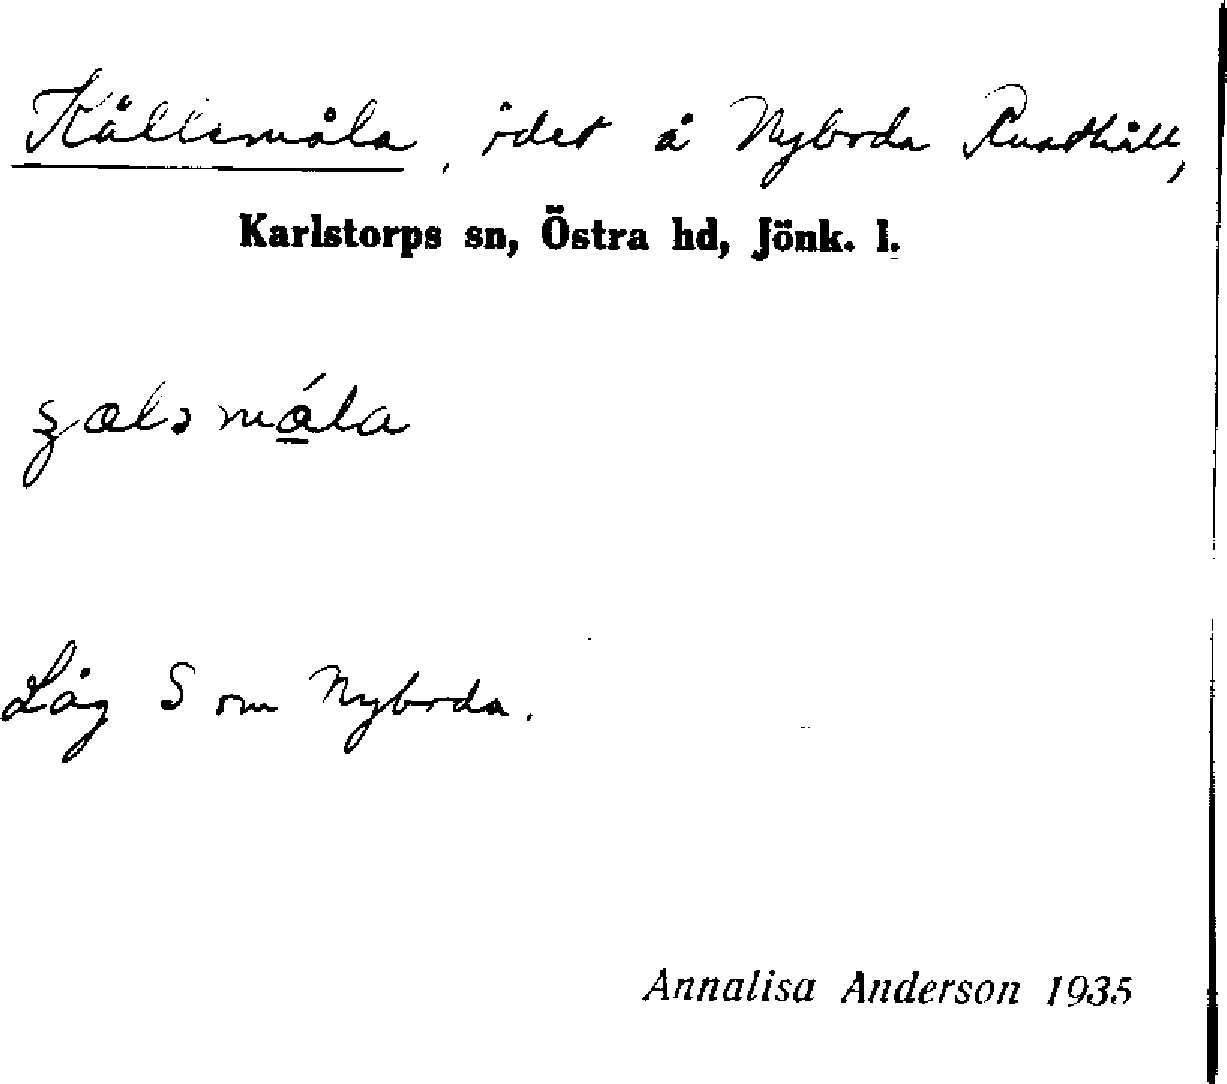 Källsmåla, ödet å Nyboda Rusthåll,
Karlstorps sn, Östra hd, Jönk. l.
Låg S om Nyboda.
Annalisa Anderson 1935